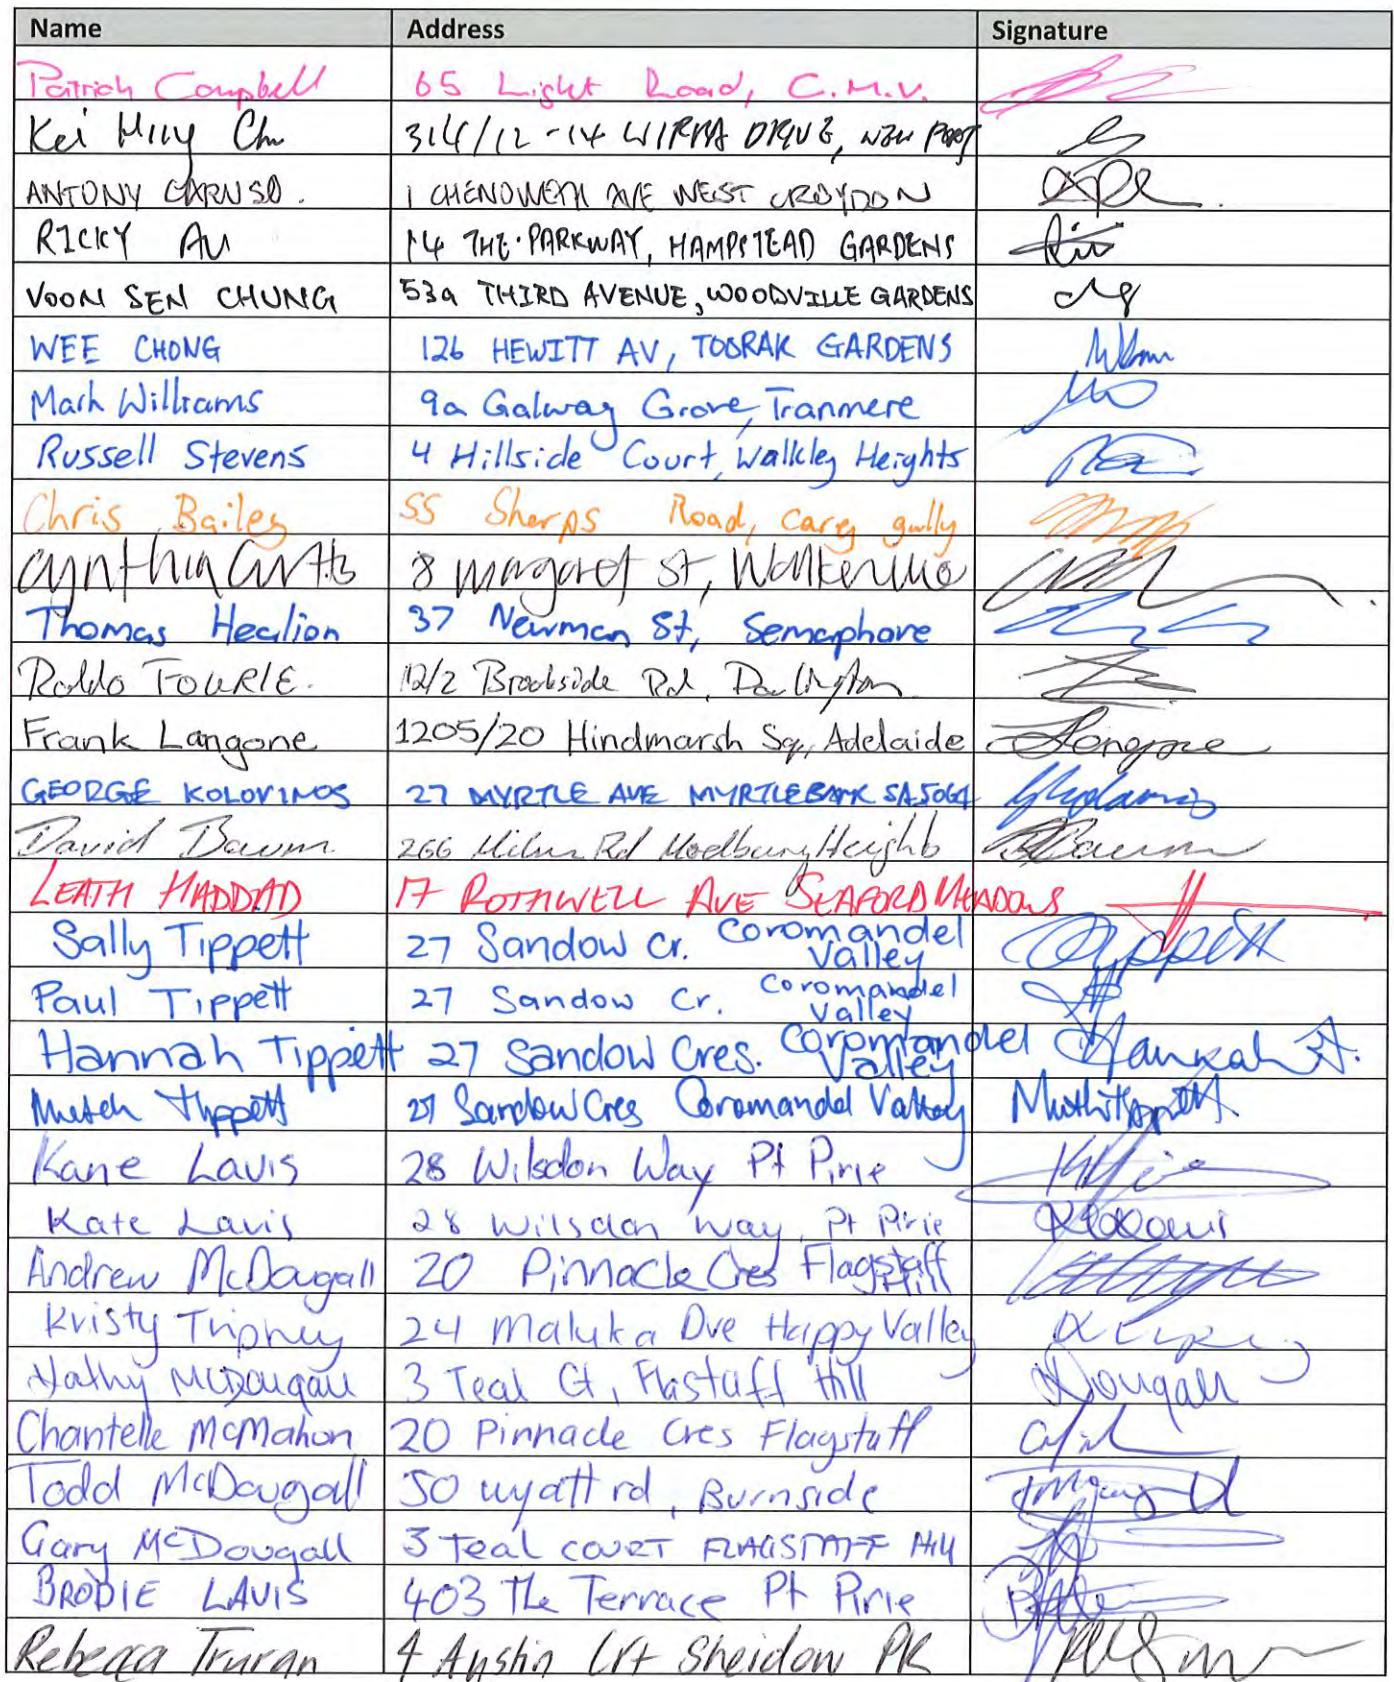 Name Address Signature
Patrick Campbell 65 Light Road, C.M.V.
Kei Hing Chu 314/12-14 WIRRA DRIVE, NEW PORT
ANTONY CARUSO. 1 CHENOWETH AVE WEST CROYDON
RICKY AU 14 THE PARKWAY, HAMPSTEAD GARDENS
VOON SEN CHUNG 53a THIRD AVENUE, WOODVILLE GARDENS
WEE CHONG 126 HEWITT AV, TOORAK GARDENS
Mark Williams 9a Galway Grove, Tranmere
Russell Stevens 4 Hillside Court, Walkley Heights
Chris Bailey 55 Sharps Road, Carey gully
Cynthia Curtis 8 Margaret St, Walkerville
Thomas Healion 37 Newman St, Semaphore
FOURIE. 12/2 Brookside Rd, Darlington
Frank Langone 1205/20 Hindmarsh Sq, Adelaide Langone
GEORGE KOLOVINOS 27 MYRTLE AVE MYRTLEBANK SA 5064
David Baum 266 Milne Rd Modbury Heights Baum
LEATH HADDAD 17 ROTHWELL AVE SEAFORD MEADOWS
Sally Tippett 27 Sandow Cr. Coromandel Valley Tippett
Paul Tippett 27 Sandow Cr. Coromandel Valley
Hannah Tippett 27 Sandow Cres. Coromandel Valley Hannah T.
Tippett 27 Sandow Cres Coromandel Valley Tippett
Kane Lavis 28 Wilsdon Way Pt Pirie
Kate Lavis 28 Wilsdon Way, Pt Pirie
Andrew McDougall 20 Pinnacle Cres Flagstaff Hill
Kristy Tripney 24 Maluka Dve Happy Valley
Kathy McDougall 3 Teal Ct, Flastaff Hill Dougall
Chantelle McMahon 20 Pinnacle Cres Flagstaff
Todd McDougall 50 wyatt rd, Burnside
Gary McDougall 3 Teal COURT FLAGSTAFF Hill
BRODIE LAVIS 403 The Terrace Pt Pirie
Rebecca Truran 4 Austin Crt Sheidow PK